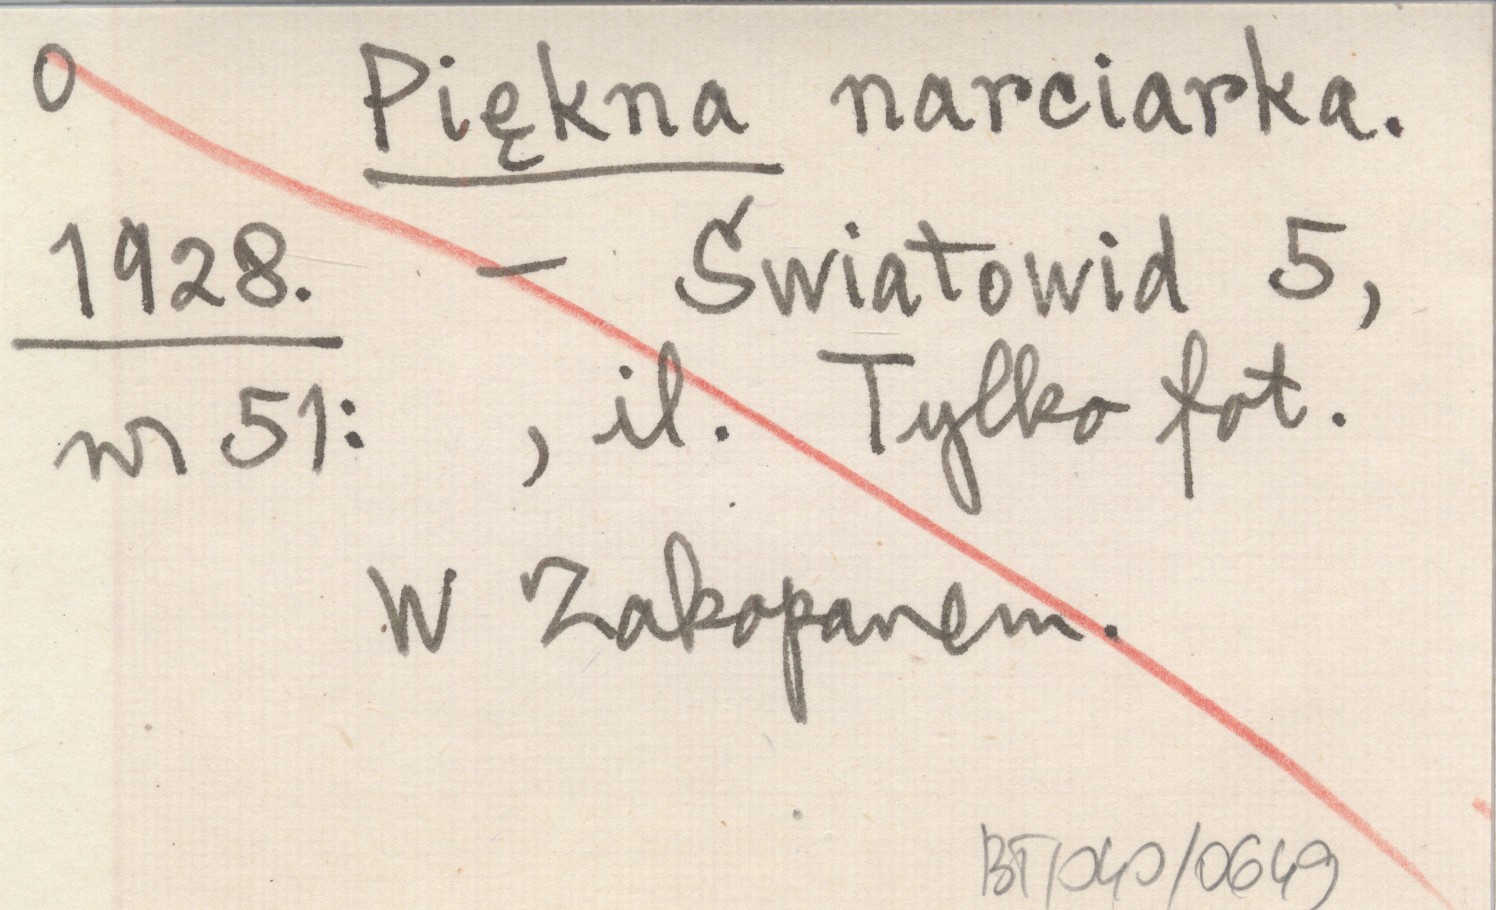 0 Piękna narciarka.
1928. – Światowid 5,
nr 51: , il. Tylko fot.
W Zakopanem.
BT/040/0649